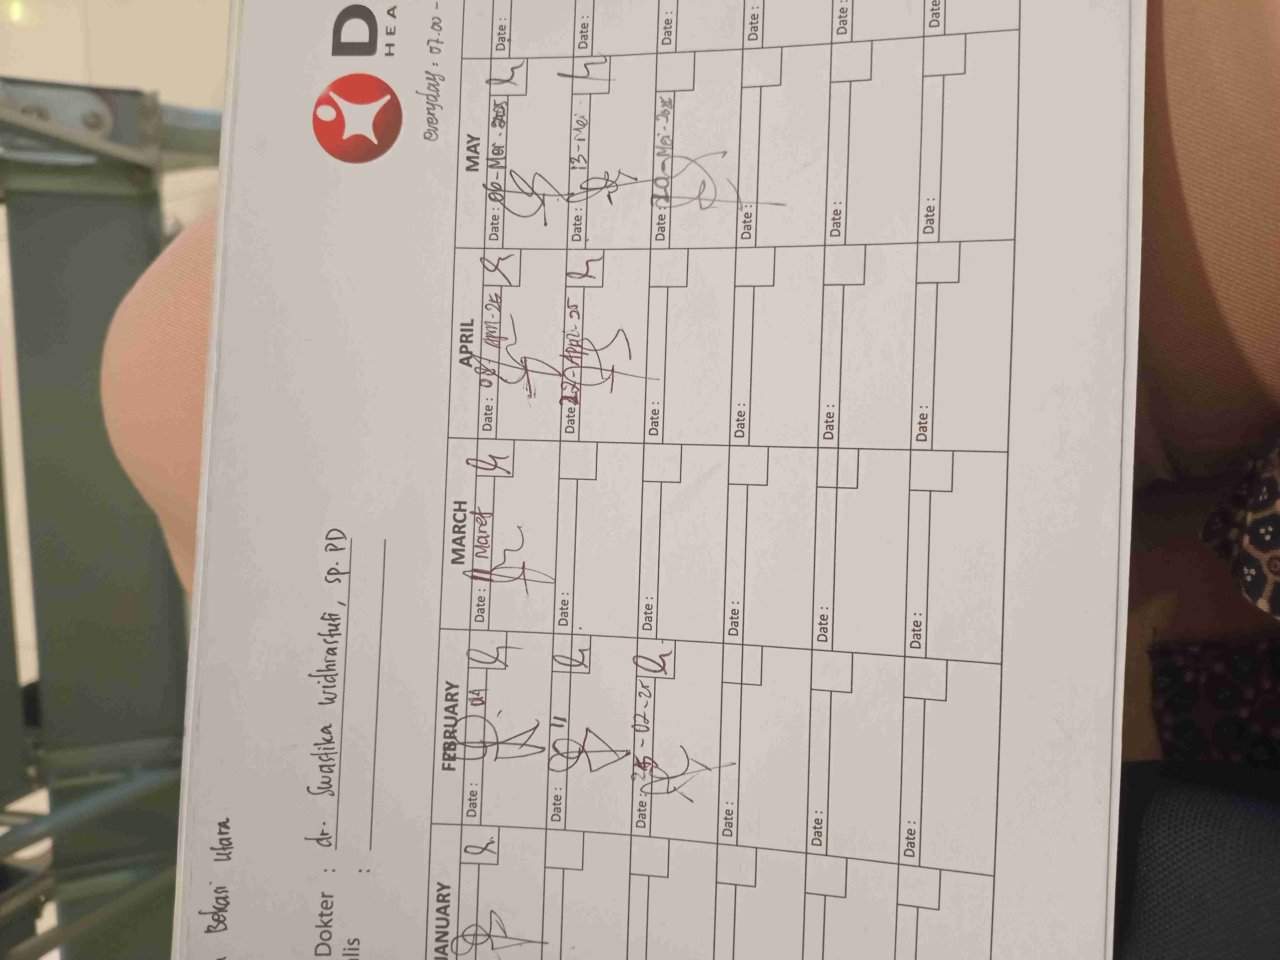 D
HEA
everyday : 07.00 -
Bekasi Utara
Dokter : dr. Swastika Widhrastuti, sp. PD
lis :
JANUARY FEBRUARY MARCH APRIL MAY
Date : 04 Date : 11 Maret Date : 08 - April - 25 Date : 06 - Mei - 2025 Date :
Date : 11 Date : Date : 22 - April - 25 Date : 13 - Mei - Date :
Date : 25 - 02 - 25 Date : Date : Date : 20 - Mei - 2025 Date :
Date : Date : Date : Date : Date :
Date : Date : Date : Date : Date :
Date : Date : Date : Date : Date